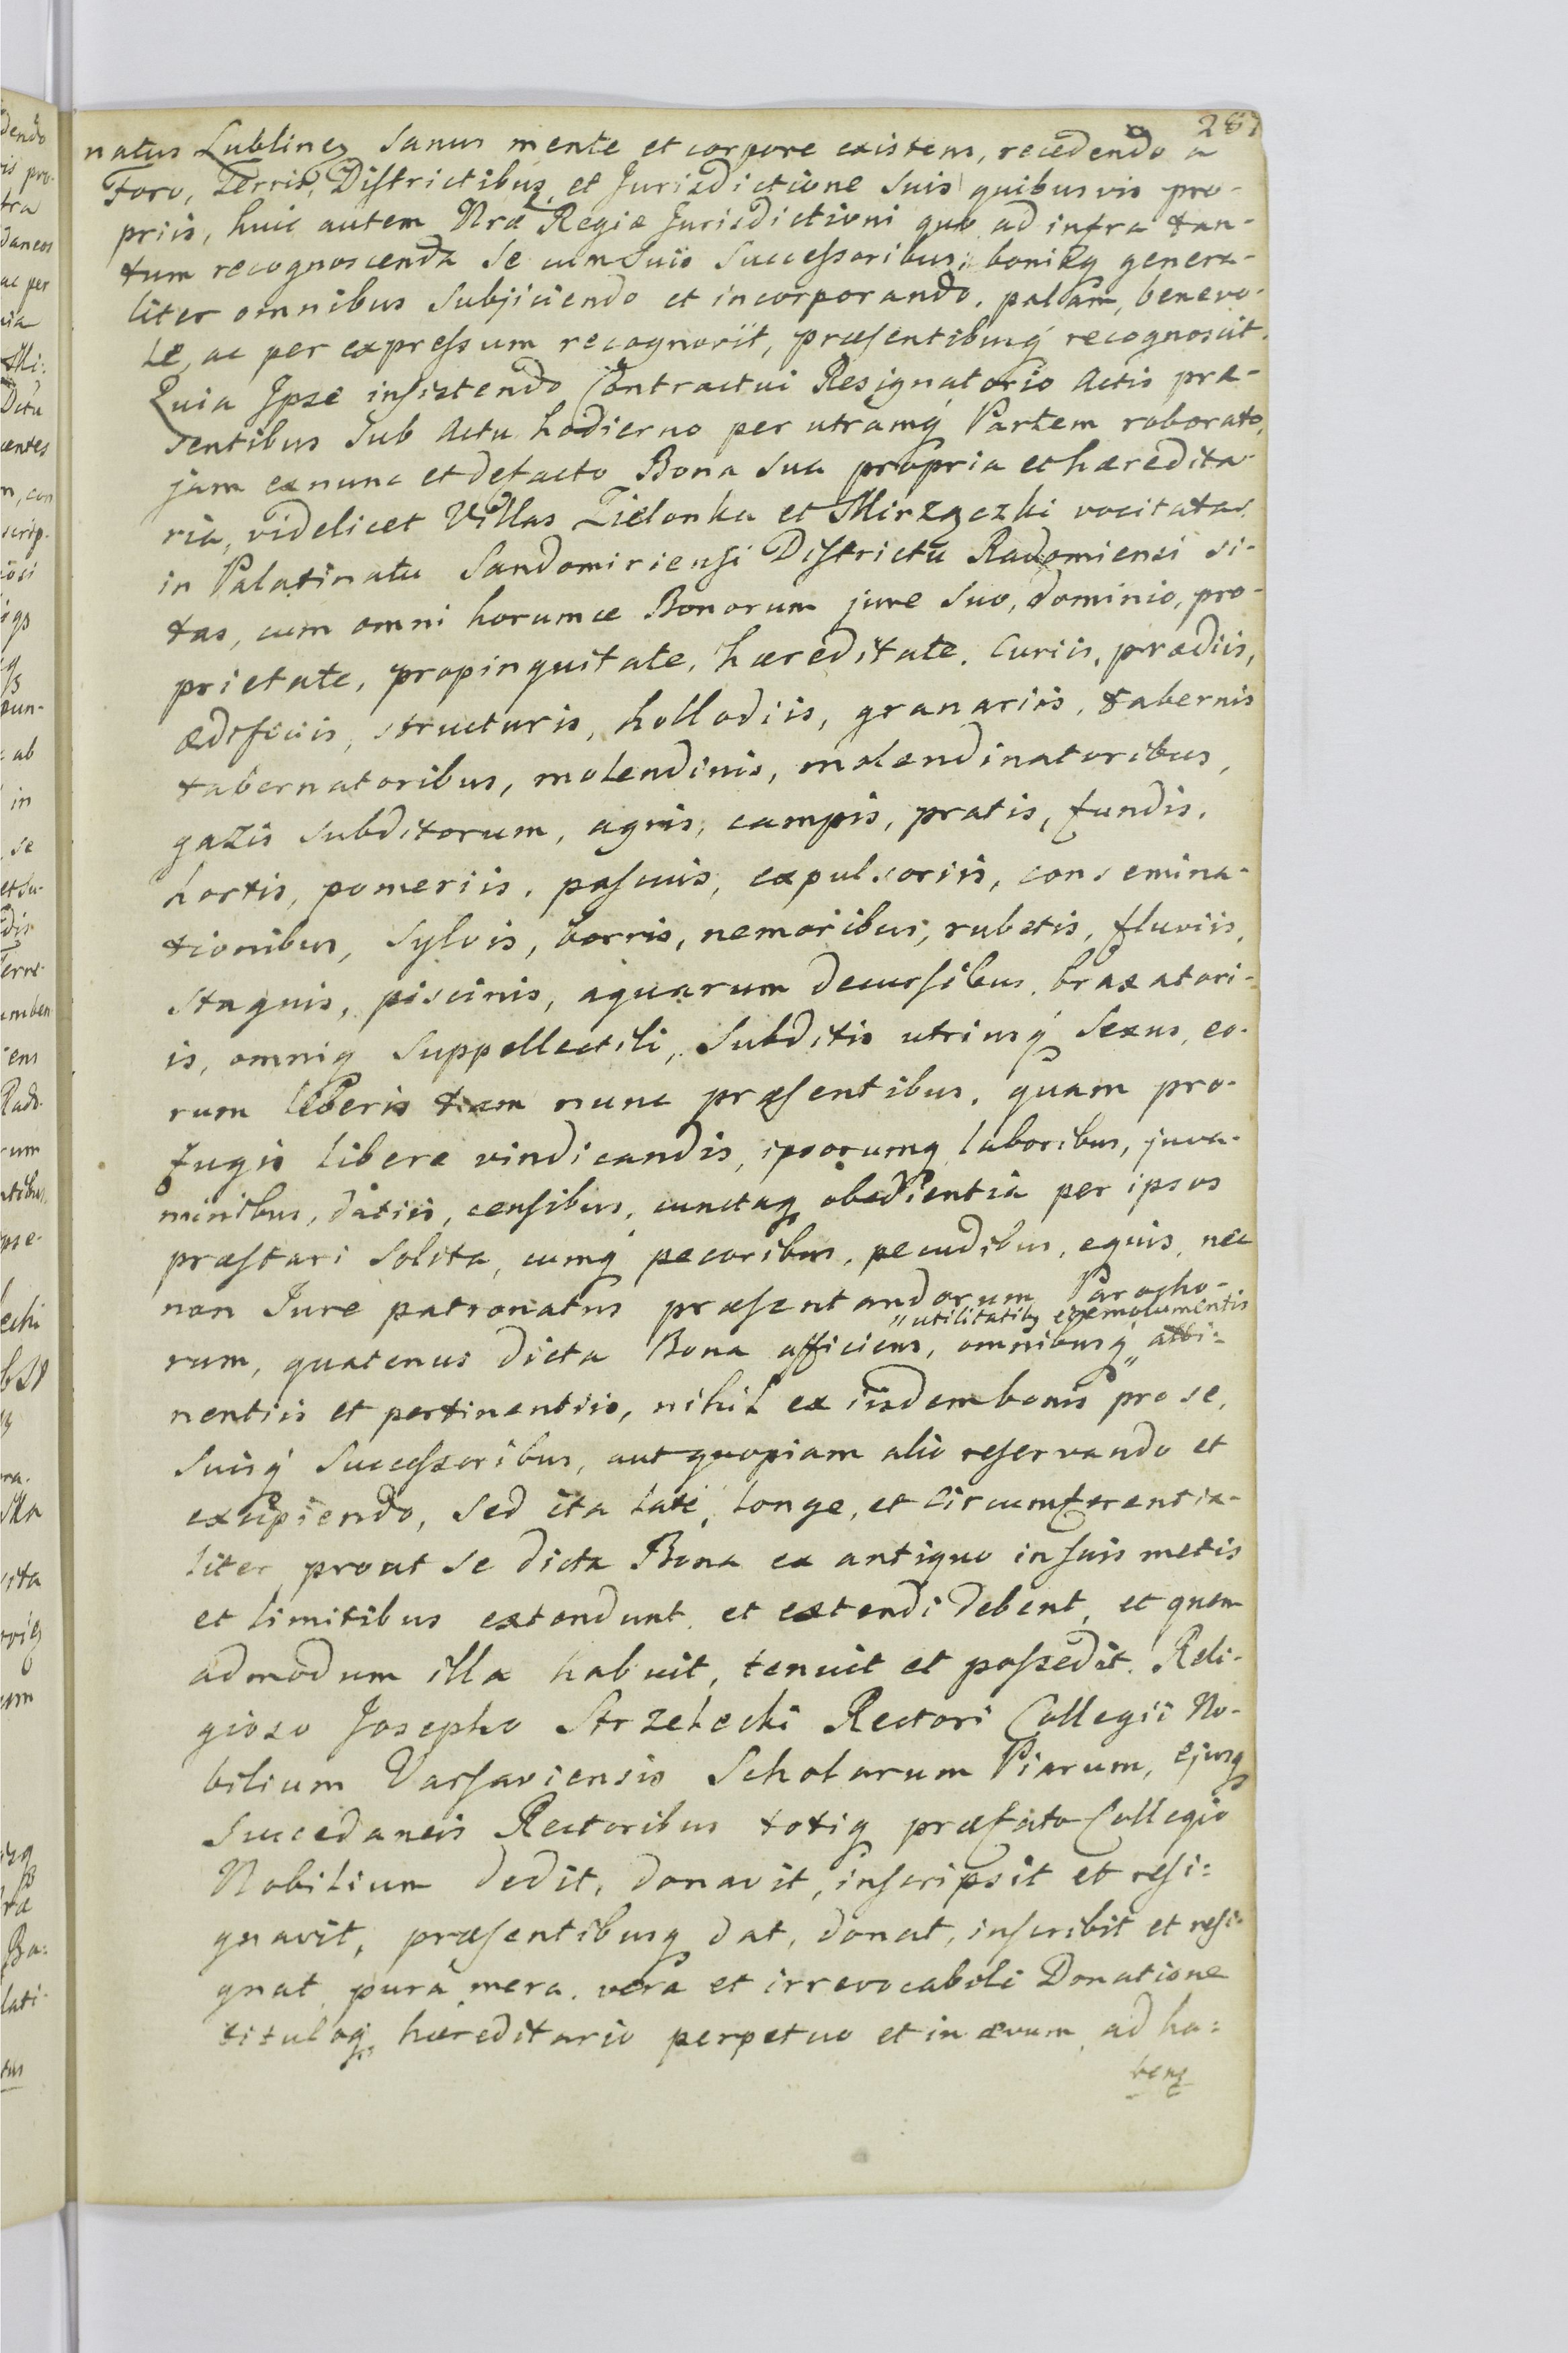 287
natus Lublineꝫ Sanus mente et corpore existens, recedendo a
Foro, Territ. Districtibus, et Jurisdictione suis quibusvis pro-
priis, huic autem Nrae Regiae Jurisdictioni quo ad infra tan-
tum recognoscenda Se cum Suis Successoribus, bonisq generа-
liter omnibus Subjiciendo et incorporando, palam, benevo-
le, ac per expressum recognovit, praesentibusq recognoscit.
Quia Ipse insistendo Contractui Resignatorio Actis prae-
sentibus Sub Actu hodierno per utramq Partem roborato,
jam ex nunc et defacto Bona Sua propria et haeredita-
ria, videlicet Villas Zielonka et Mirzączki vocitatas,
in Palatinatu Sandomiriensi Districtu Radomiensi si-
tas, cum omni horumce Bonorum jure Suo, dominio, pro-
prietate, propinquitate, haereditate, Curiis, praediis,
aedificiis, structuris, hollodiis, granariis, tabernis
tabernatoribus, molendinis, molendinatoribus,
gazis Subditorum, agris, campis, pratis, fundis,
hortis, pomeriis, pascuis, expulsoriis, consemina-
tionibus, Sylvis, borris, nemoribus, rubetis, fluviis,
stagnis, piscinis, aquarum decursibus, braxatori-
is, omniq Suppellectili, Subditis utriusq Sexus, eo-
rum liberis tam nunc praesentibus, quam pro-
fugis libere vindicandis, ipsorumq laboribus, juva-
minibus, datiis, censibus, cunctaq obedientia per ipsos
praestari Solita, cumq pecoribus, pecudibus, equis, nec
non Jure patronatus praesentandorum Parocho-
"utilitatibꝫ et emolumentis
rum, quatenus dicta Bona afficiens, omnibusq" atti-
nentiis et pertinentiis, nihil ex iisdem bonis pro se,
Suisq Successoribus, aut quopiam alio reservando et
excipiendo, Sed ita late, longe, et circumferentia-
liter prout Se dicta Bona ex antiquo in Suis metis
et limitibus extendunt, et extendi debent, et quem
admodum illa habuit, tenuit et possedit. Reli-
gioso Josepho Strzelecki Rectori Collegii No-
bilium Varsaviensis Scholarum Piarum, ejusq
Succedaneis Rectoribus totiq praefato Collegio
Nobilium dedit, donavit, inscripsit et resi-
gnavit, praesentibusq dat, donat, inscribit et resi-
gnat, pura mera, vera et irrevocabili Donatione
tituloq, haereditario perpetuo et in aevum, ad ha-
benꝫ